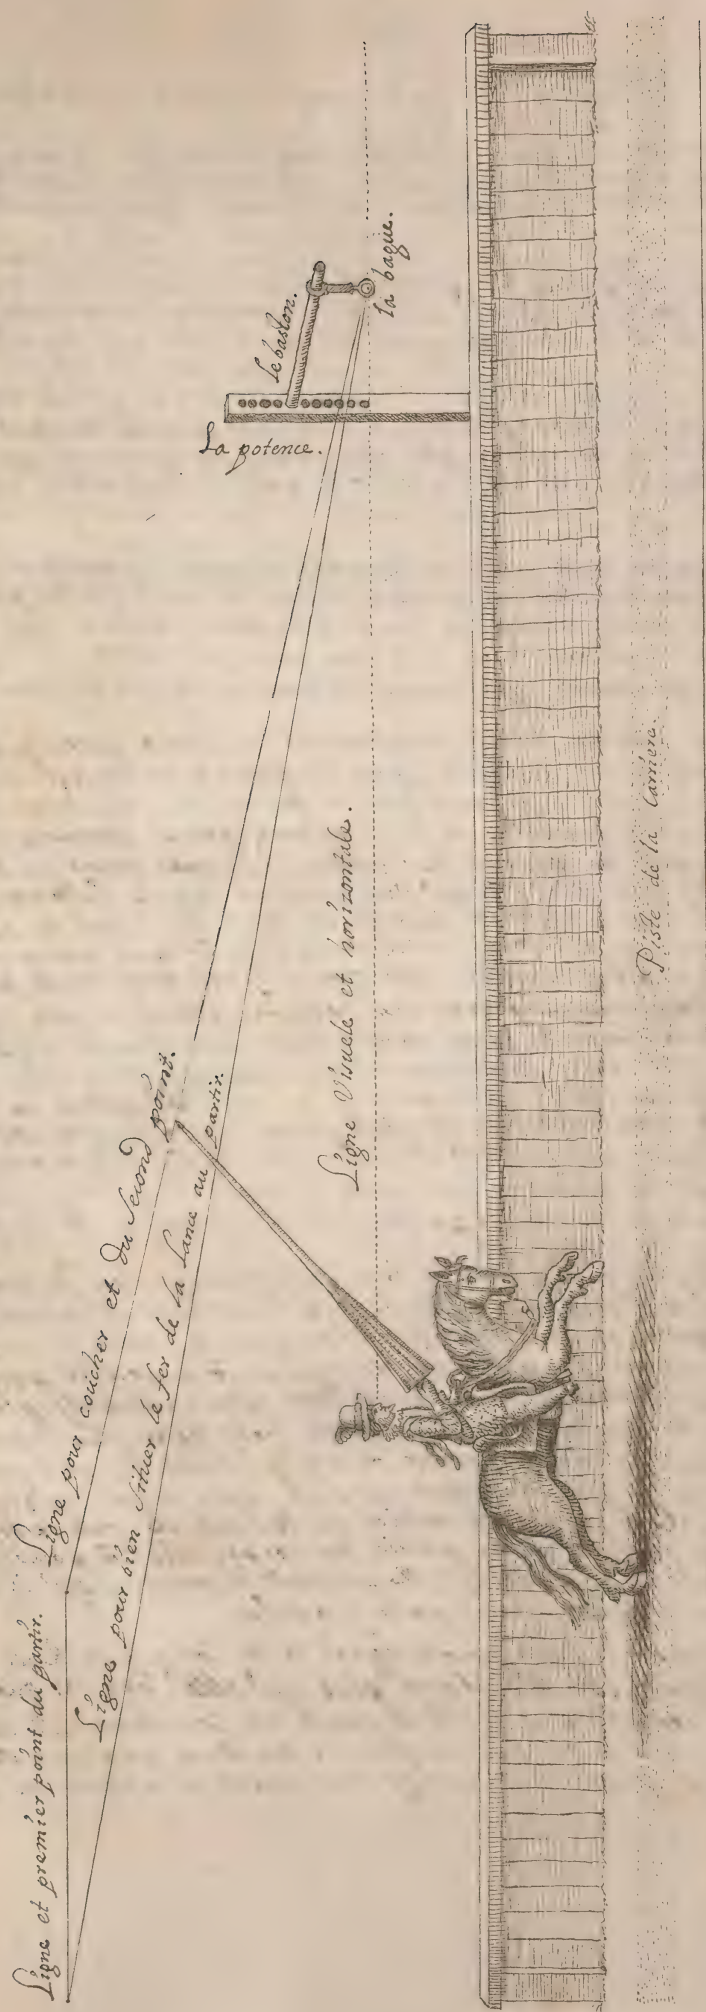 Ligne et premier point du partir.
Ligne pour coucher et du second point.
Ligne pour bien situer le fer de la Lance au partir.
Ligne Visuele et horizontale.
La potence.
le baston.
la bague.
Piste de la Carriere.